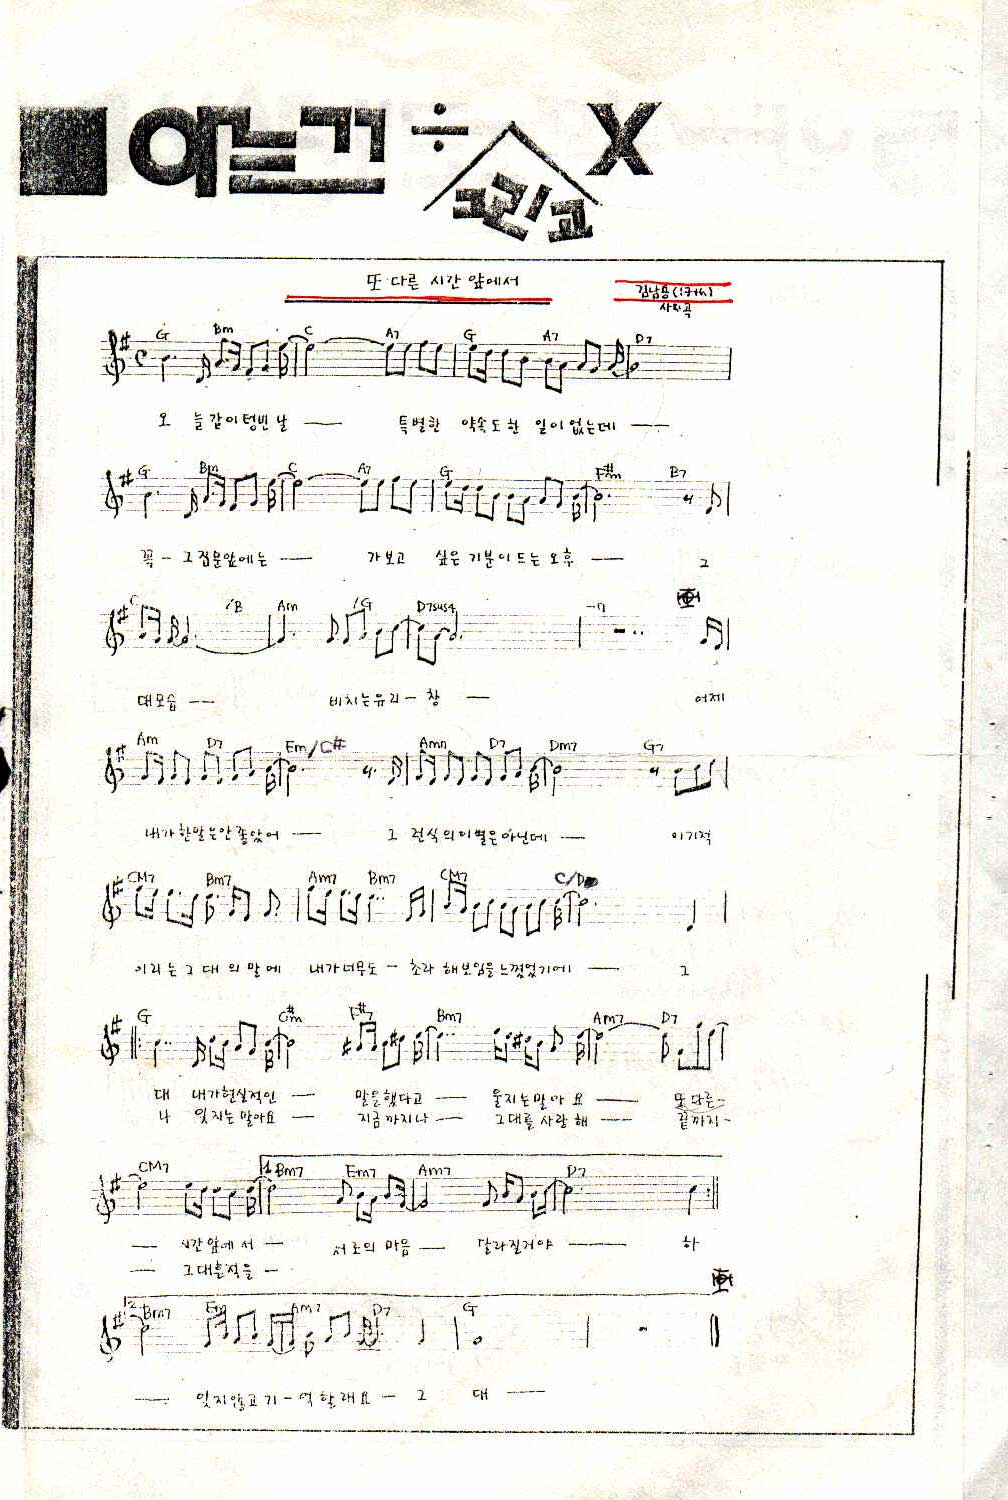 아느끼 ÷ 그리고 X
또 다른 시간 앞에서
김남용(17th)
사, 곡
G Bm C A7 G A7 D7
오 늘같이텅빈날 — 특별한 약속도한 일이없는데 —
G Bm C A7 G F#m B7
꼭 - 그집문앞에는 — 가보고 싶은기분이드는오후 — 그
C /B Am /G D7sus4 -7
대모습 — 비치는유리 - 창 — 어제
Am D7 Em/C# Am7 D7 Dm7 G7
내가한말은안좋았어 — 그런식의이별은아닌데 — 이기적
CM7 Bm7 Am7 Bm7 CM7 C/D
이라는그대의말에 내가너무도 - 초라해보임을느꼈었기에 — 그
G C#m F#7 Bm7 Am7 D7
대 내가현실적인 — 말을했다고 — 울지는말아요 — 또다른-
나 잊지는말아요 — 지금까지나 — 그대를사랑해 — 끝까지-
CM7 1. Bm7 Em7 Am7 D7
— 시간앞에서 — 서로의마음 — 달라질거야 — 하
— 그대흔적을 —
2. Bm7 Em Am7 D7 G
— 잊지않고기 - 억할래요 — 그 대 —